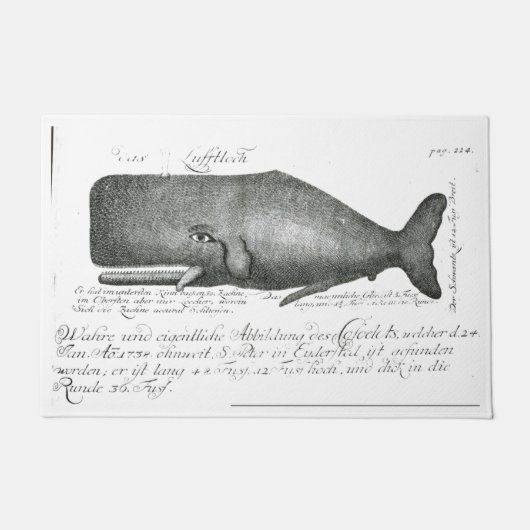 Das Lufftloch
pag. 224.
Er hat im untersten Kinnbacken 52. Zaehne,
in Obersten aber nur Loecher, worein
Sich die Zaehne accurat Schliessen.
Das maennliche Glied ist 3. Fuss
lang, im
in die Runde.
Der Schwantz ist 12. Fuss Breit.
Wahre und eigentliche Abbildung des Cascelots, welcher d. 24.
Jan. Ao. 1738. ohnweit, S. Peter in Eydersted, ist gefunden
worden; er ist lang 48. Fuss. 12 Fuss hoch, und dick in die
Runde 36. Fuss.